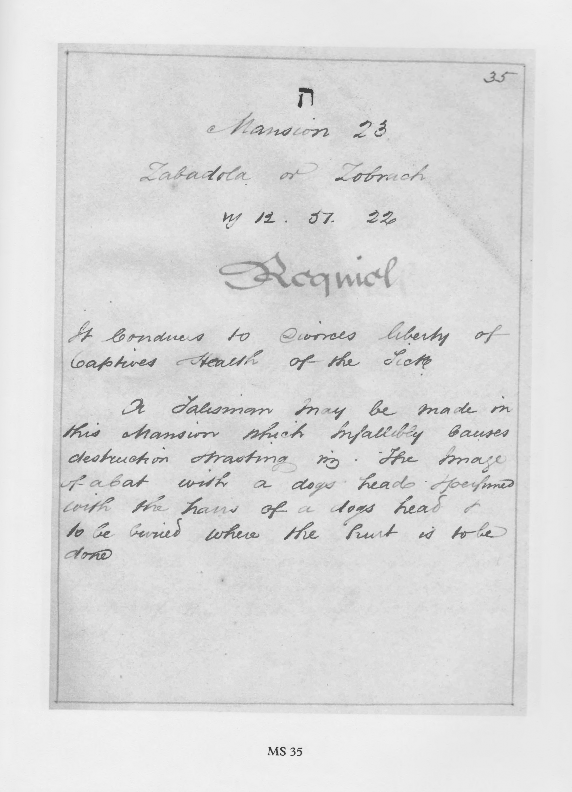 35
ה
Mansion 23
Zabadola or Zobrach
♑ 12. 51. 22
Requiel
It Conduces to Divorces liberty of
Captives Health of the Sick
A Talisman may be made in
this Mansion which Infallibly Causes
destruction &wasting viz. The Image
of a bat with a dogs head perfumed
with the hairs of a dogs head &
to be buried where the hurt is to be
done
MS 35